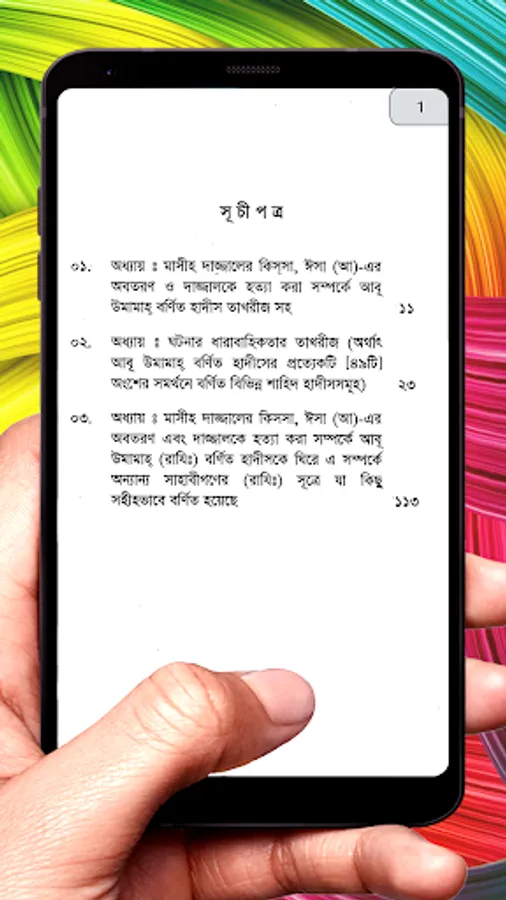 1
সূচীপত্র
০১. অধ্যায় ঃ মাসীহ দাজ্জালের কিস্সা, ঈসা (আ)-এর
অবতরণ ও দাজ্জালকে হত্যা করা সম্পর্কে আবূ
উমামাহ্ বর্ণিত হাদীস তাখরীজ সহ ১১
০২. অধ্যায় ঃ ঘটনার ধারাবাহিকতার তাখরীজ (অর্থাৎ
আবূ উমামাহ্ বর্ণিত হাদীসের প্রত্যেকটি [৪৯টি]
অংশের সমর্থনে বর্ণিত বিভিন্ন শাহিদ হাদীসসমূহ) ২৩
০৩. অধ্যায় ঃ মাসীহ দাজ্জালের কিসসা, ঈসা (আ)-এর
অবতরণ এবং দাজ্জালকে হত্যা করা সম্পর্কে আবূ
উমামাহ্ (রাযিঃ) বর্ণিত হাদীসকে ঘিরে এ সম্পর্কে
অন্যান্য সাহাবীগণের (রাযিঃ) সূত্রে যা কিছু
সহীহভাবে বর্ণিত হয়েছে ১১৩